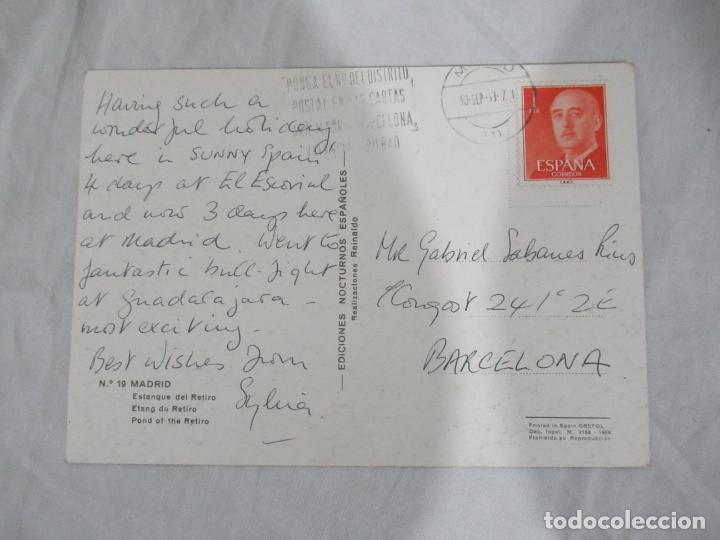 Having such a
wonderful holiday
here in SUNNY Spain
4 days at El Escorial
and now 3 days here
at Madrid. Went to
fantastic bull-fight
at Guadalajara –
most exciting.
Best wishes from
Sylvia.
N.º 19 MADRID
Estanque del Retiro
Etang du Retiro
Pond of the Retiro
EDICIONES NOCTURNOS ESPAÑOLES
Realizaciones Reinaldo
PONGA EL Nº DEL DISTRITO
POSTAL EN LAS CARTAS
BARCELONA,
BILBAO
30 SEP
1
PTA
ESPAÑA
CORREOS
Mr Gabriel Sabanes
241º 2ª
BARCELONA
Printed in Spain GREFOL
Dep. legal: M. 1969
Prohibida su Reproducción
todocoleccion.net